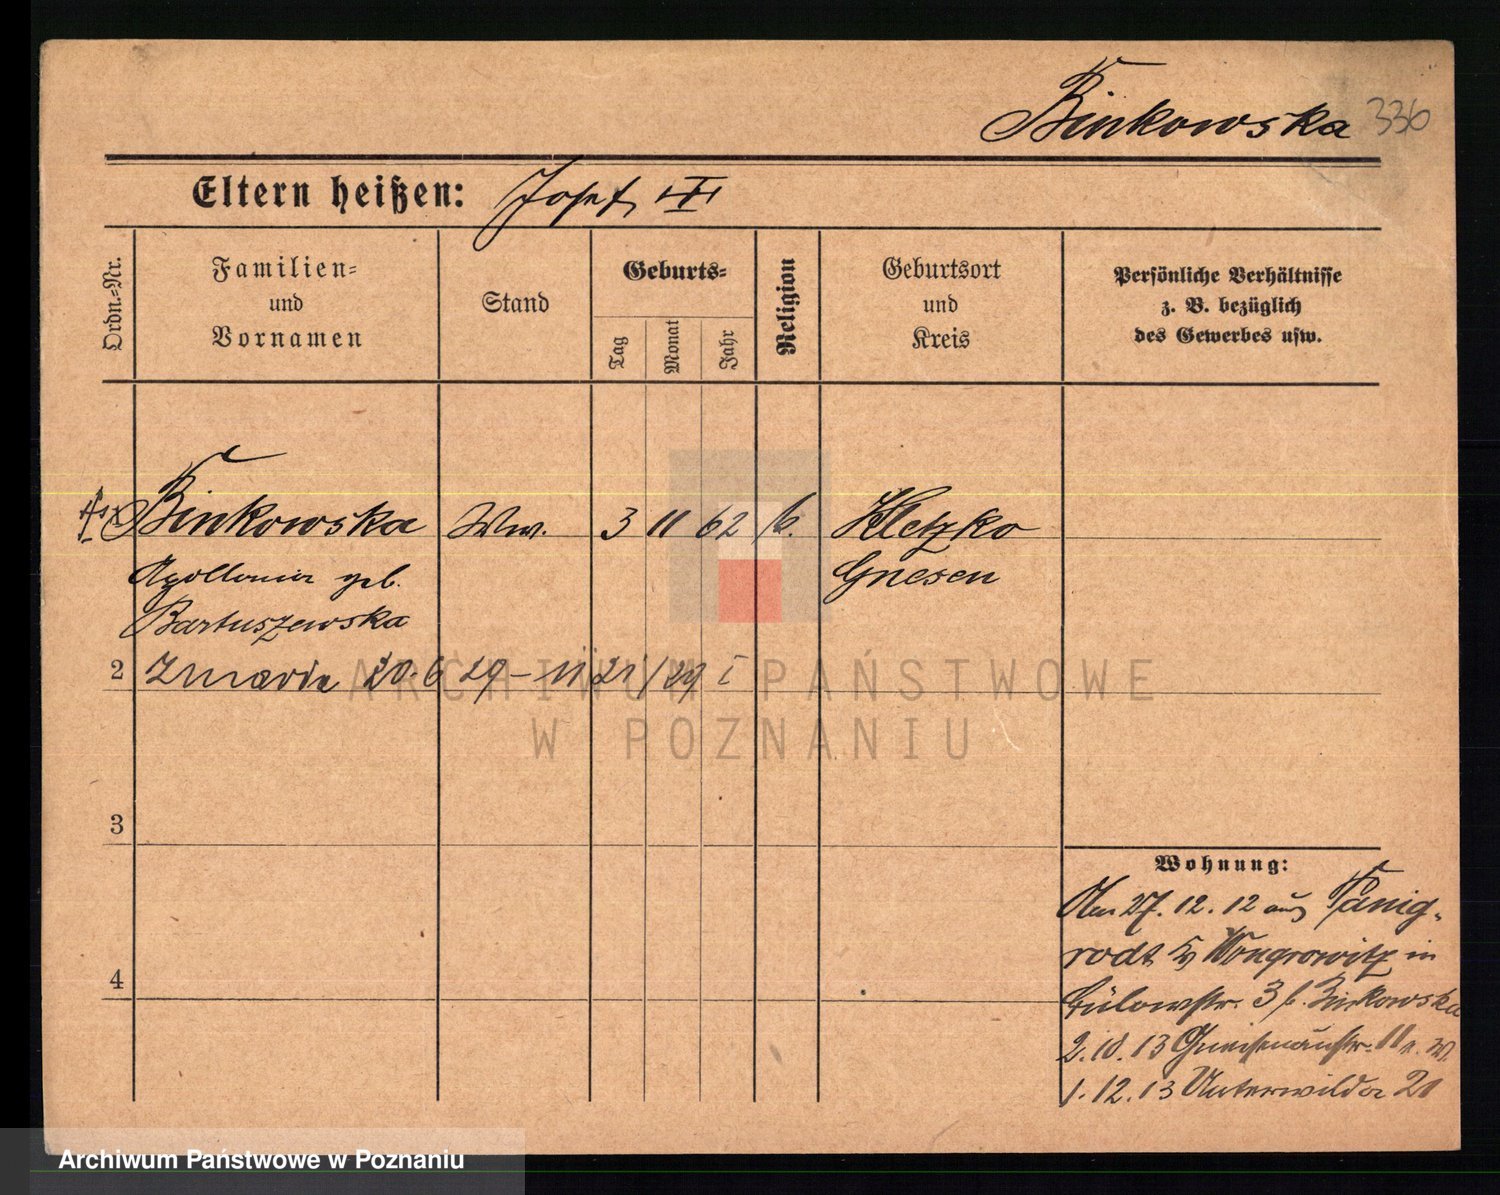 Binkowska 336
Eltern heißen: Josef III
Ordn.-Nr.
Familien-
und
Vornamen
Stand
Geburts-
Tag
Monat
Jahr
Religion
Geburtsort
und
Kreis
Persönliche Verhältnisse
z. B. bezüglich
des Gewerbes usw.
Binkowska Ww. 3 11 62 k. Kletzko
Apollonia geb. Gnesen
Bartuszewska
2 20.6 29 - 21/29
3
4
Wohnung:
Am 27.12.12 aus Panig-
rodt Wongrowitz in
Bülowstr. 3 b. Binkowska
2.10.13 Gneisenaustr. 11
1.12.13 Unterwilda 21
ARCHIWUM PAŃSTWOWE
W POZNANIU
Archiwum Państwowe w Poznaniu